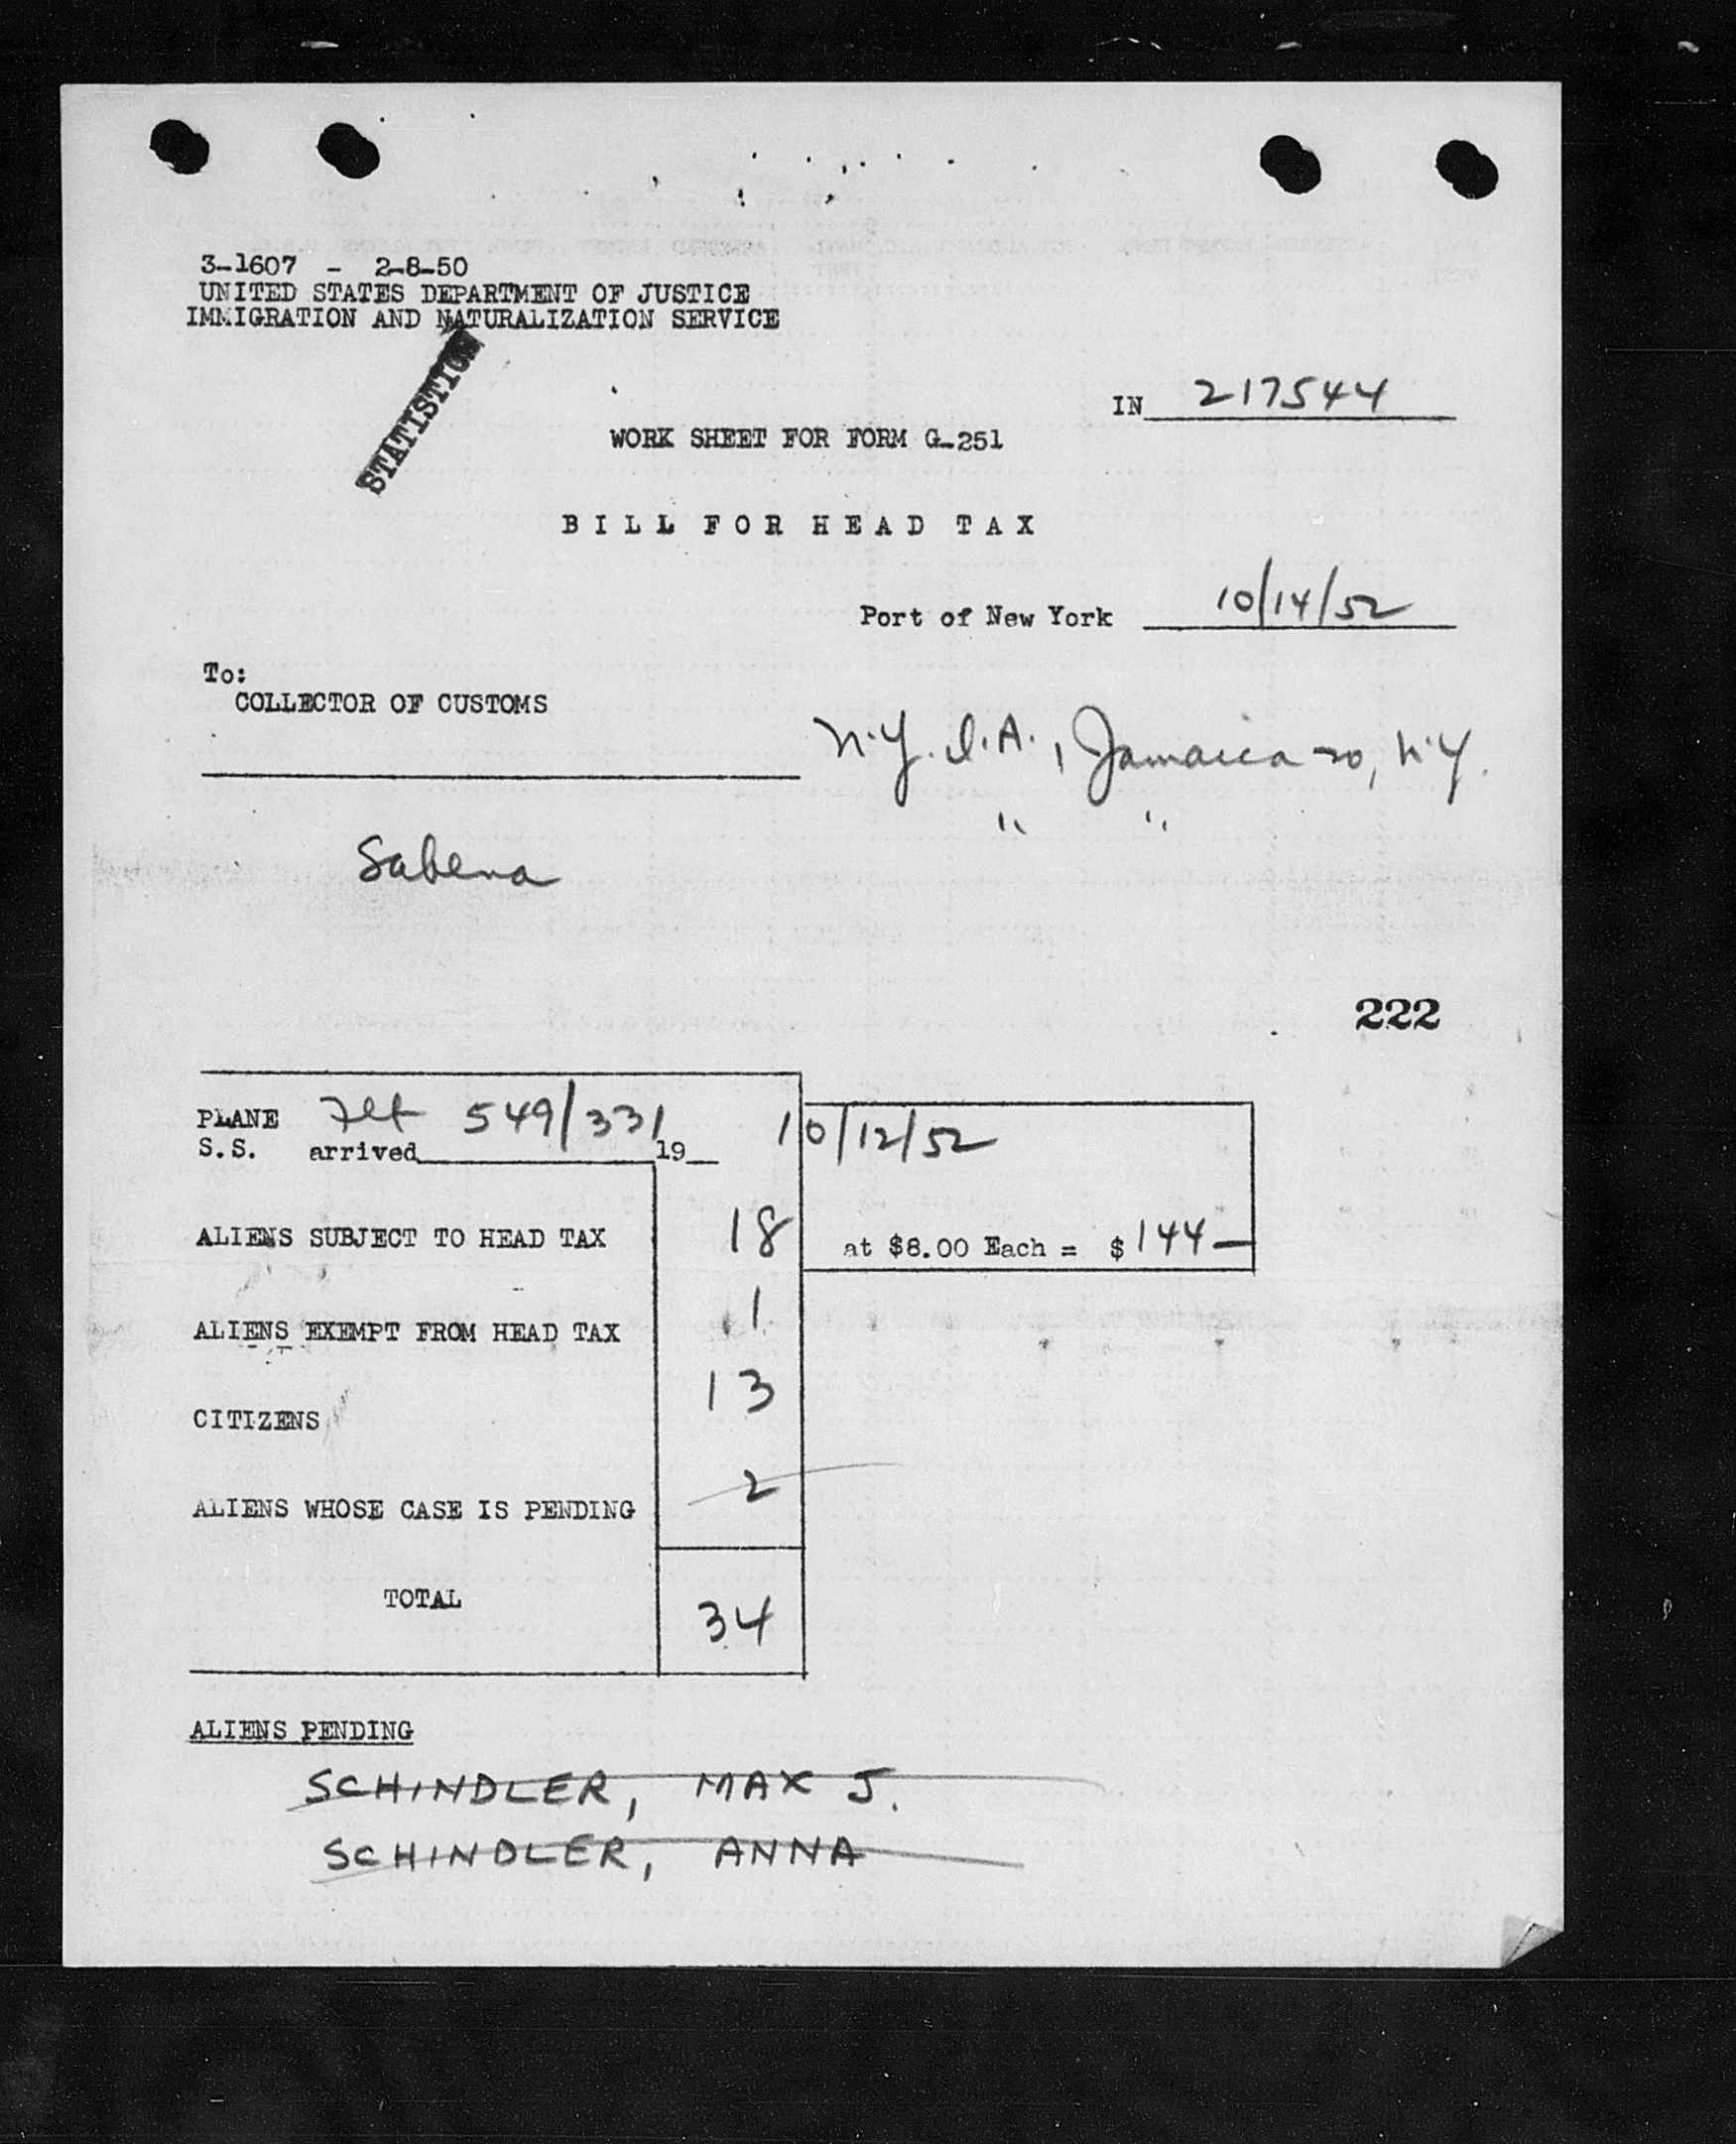 3-1607 - 2-8-50
UNITED STATES DEPARTMENT OF JUSTICE
IMMIGRATION AND NATURALIZATION SERVICE
STATISTICS
IN 217544
WORK SHEET FOR FORM G-251
BILL FOR HEAD TAX
Port of New York 10/14/52
To:
COLLECTOR OF CUSTOMS
N.Y. I.A., Jamaica 30, N.Y.
" "
Sabena
222
PLANE Flt 549/331 10/12/52
S.S. arrived 19
ALIENS SUBJECT TO HEAD TAX 18 at $8.00 Each = $144—
ALIENS EXEMPT FROM HEAD TAX 1
CITIZENS 13
ALIENS WHOSE CASE IS PENDING 2
TOTAL 34
ALIENS PENDING
SCHINDLER, MAX J.
SCHINDLER, ANNA